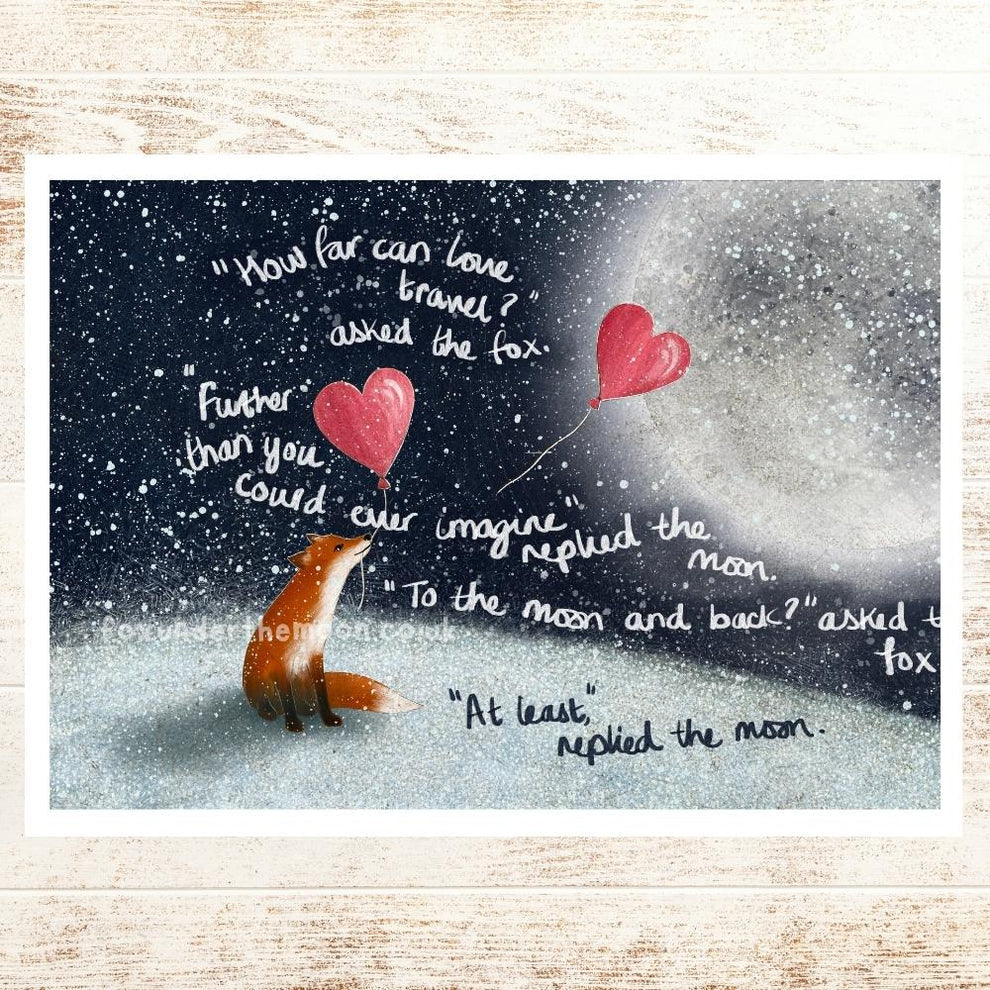 "How far can love
travel?"
asked the fox.
"Further
than you
could ever imagine"
replied the
moon.
"To the moon and back?" asked t
fox
"At least,"
replied the moon.
foxunderthemoon.co.uk